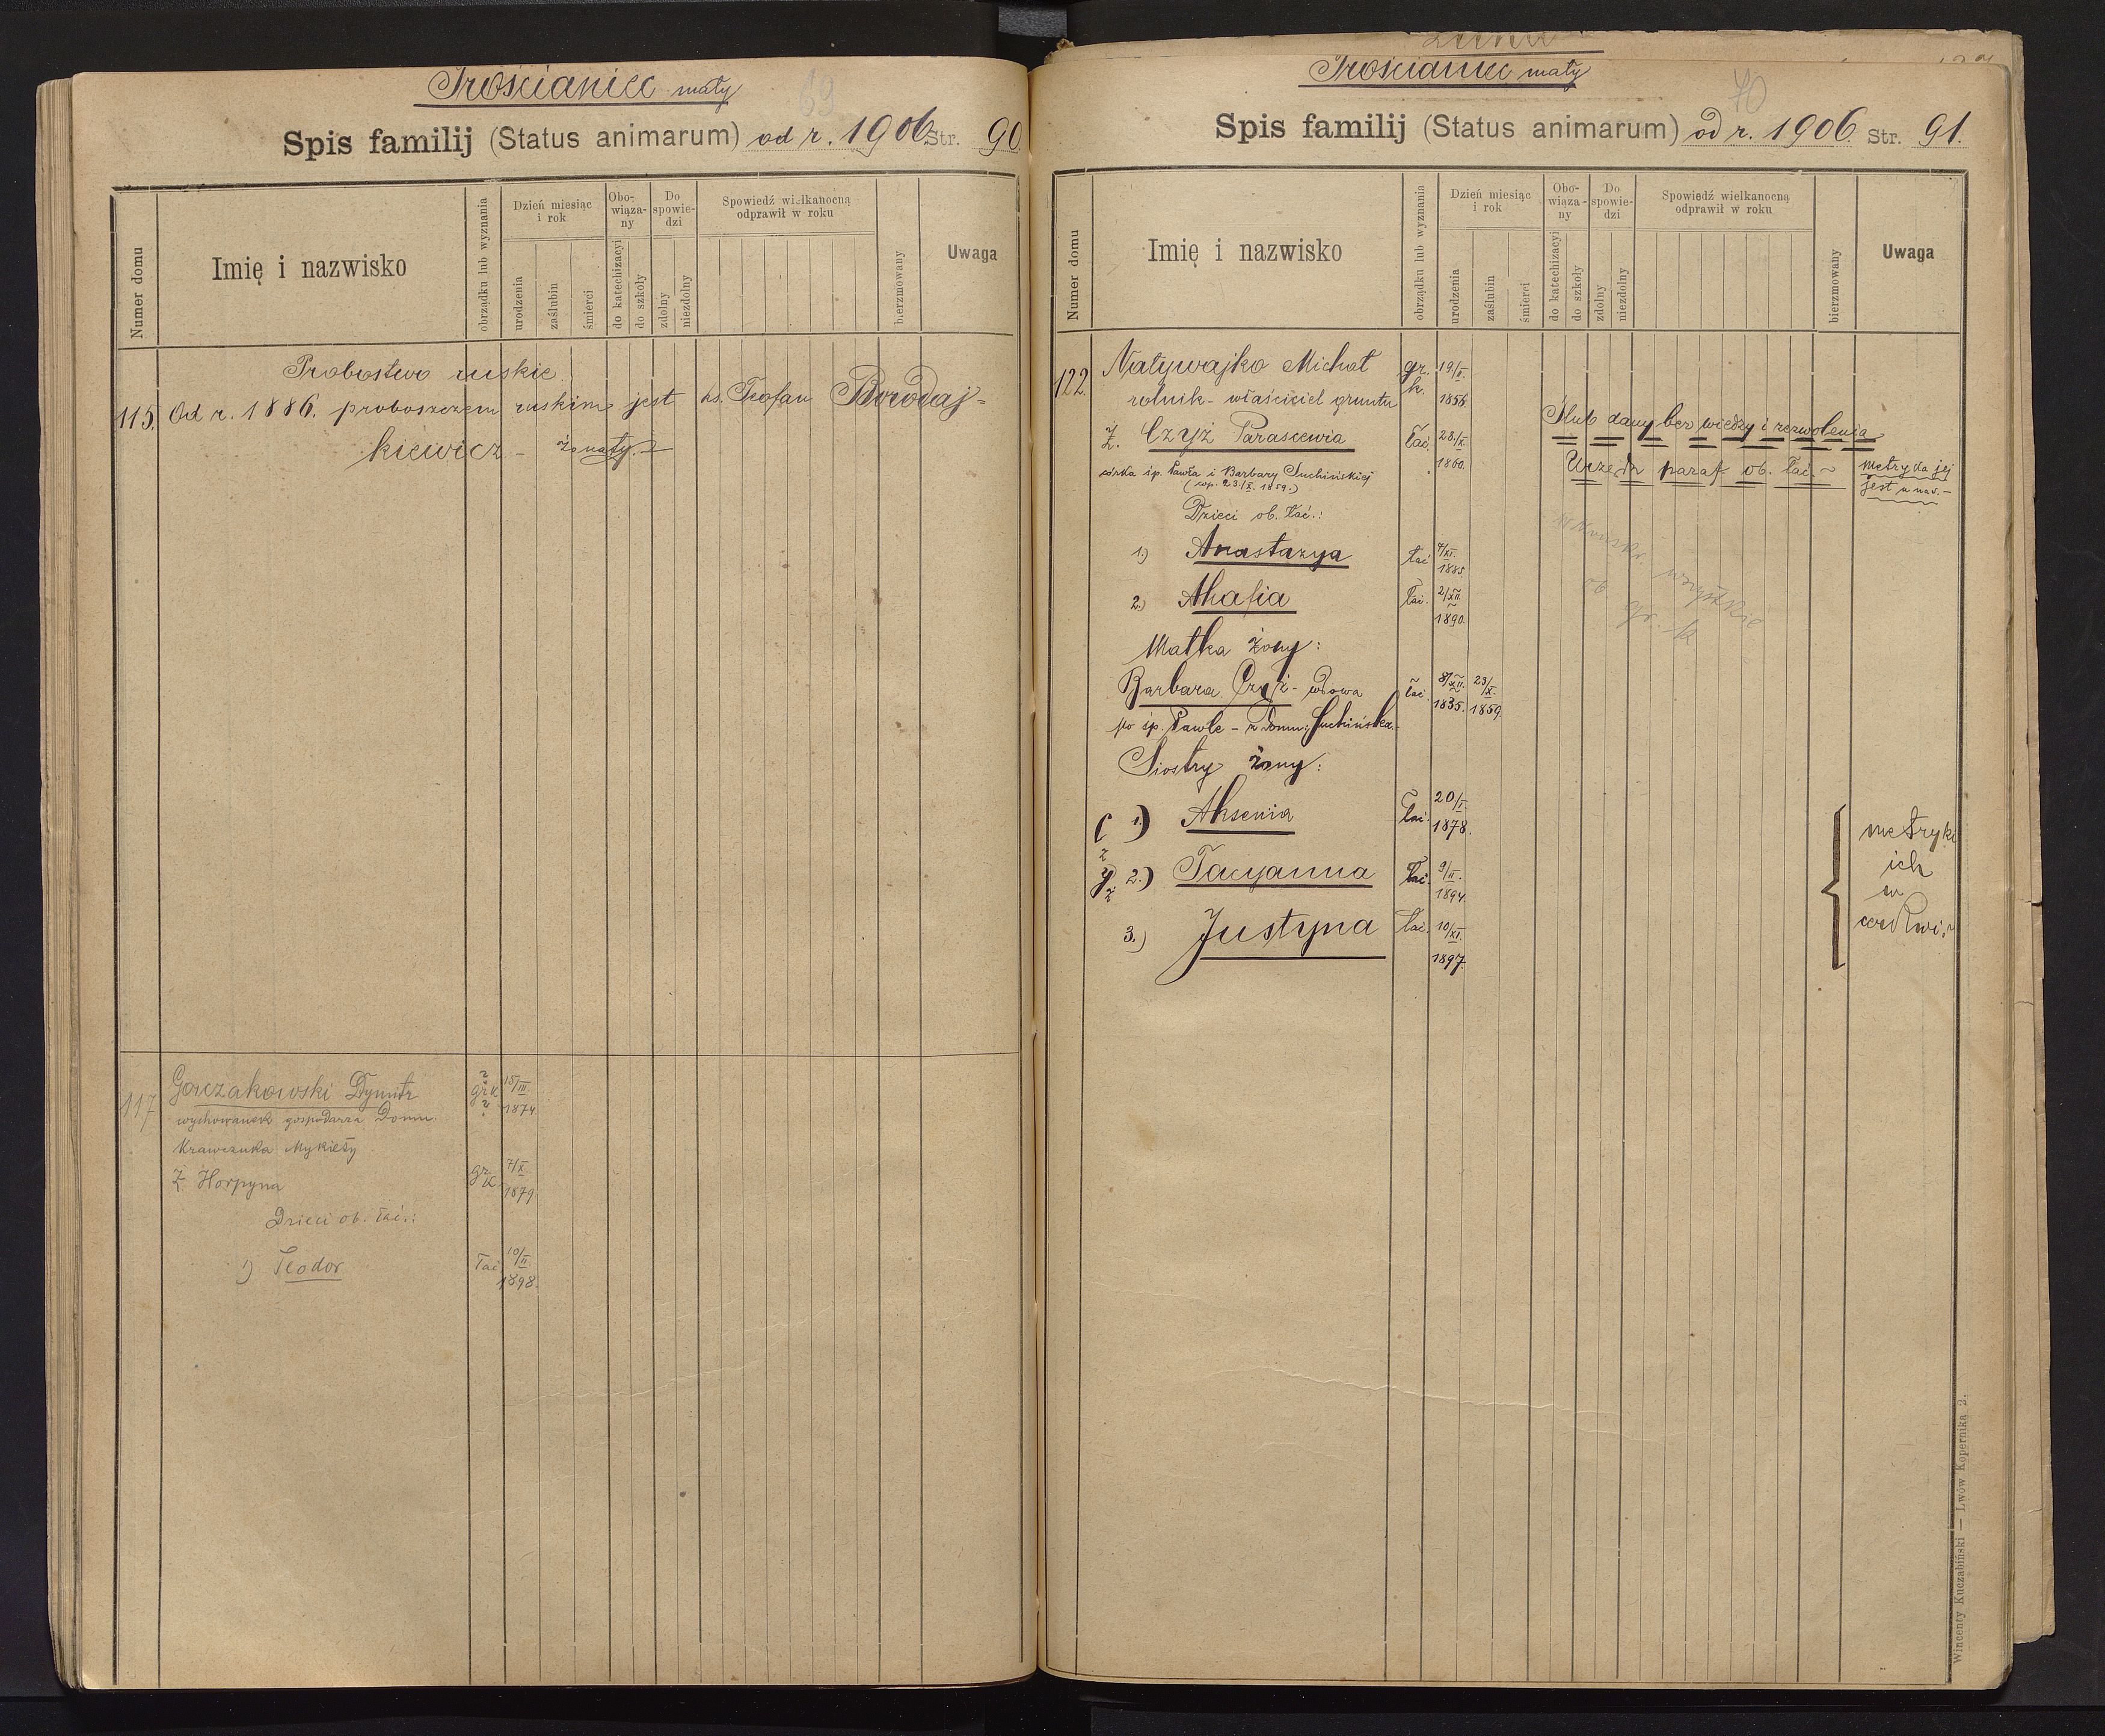 Trościaniec mały
69
Spis familij (Status animarum) od r. 1906 Str. 90
Numer domu
Imię i nazwisko
obrządku lub wyznania
Dzień miesiąc i rok
urodzenia
zaślubin
śmierci
Obo-wiąza-ny
do katechizacyi
do szkoły
Do spowie-dzi
zdolny
niezdolny
Spowiedź wielkanocną odprawił w roku
bierzmowany
Uwaga
Probostwo ruskie
115. Od r. 1886. proboszczem ruskim jest ks. Teofan Borodaj-
kiewicz - żonaty.
117 Gorczakowski Dymitr grk 15/III. 1874
wychowanek gospodarza Domu
Krawczuka Mykiety
Ż. Horpyna gr k 7/X. 1879
Dzieci ob. łać.:
1) Teodor łać 10/II. 1898.
Trościaniec mały
70
Spis familij (Status animarum) od r. 1906. Str. 91.
Numer domu
Imię i nazwisko
obrządku lub wyznania
Dzień miesiąc i rok
urodzenia
zaślubin
śmierci
Obo-wiąza-ny
do katechizacyi
do szkoły
Do spowie-dzi
zdolny
niezdolny
Spowiedź wielkanocną odprawił w roku
bierzmowany
Uwaga
122. Natywajko Michał gr. k. 1856.
rolnik - właściciel gruntu
Ślub dany bez wiedzy i zezwolenia
Ż. Czyż Parascewia łać. 28/X 1860.
Urzędu paraf. ob. łać. ~ metryka jej
jest u nas. -
córka śp. Pawła i Barbary Suchińskiej
(wp. 23/X. 1859.)
Dzieci ob. łać.:
1.) Anastazya łać 4/XI. 1885.
2.) Ahafia łać. 2/XII. 1890.
wszystkie
ob gr. k
Matka żony:
Barbara Czyż - wdowa łać. 8/XII. 1835. 23/X. 1859.
po śp. Pawle - z domu: Suchińska.
Siostry żony:
1.) Aksenia łać. 20/I. 1878.
2.) Tacyanna łać. 9/II. 1894.
3.) Justyna łać. 10/XI. 1897.
metryki
ich
w
cerkwi.
Wincenty Kuczabiński — Lwów Kopernika 2.